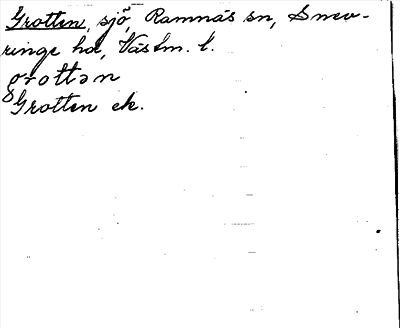 Grotten, sjö, Ramnäs sn, Snev-
ringe hd, Västm. l.
grottən
Grotten ek.